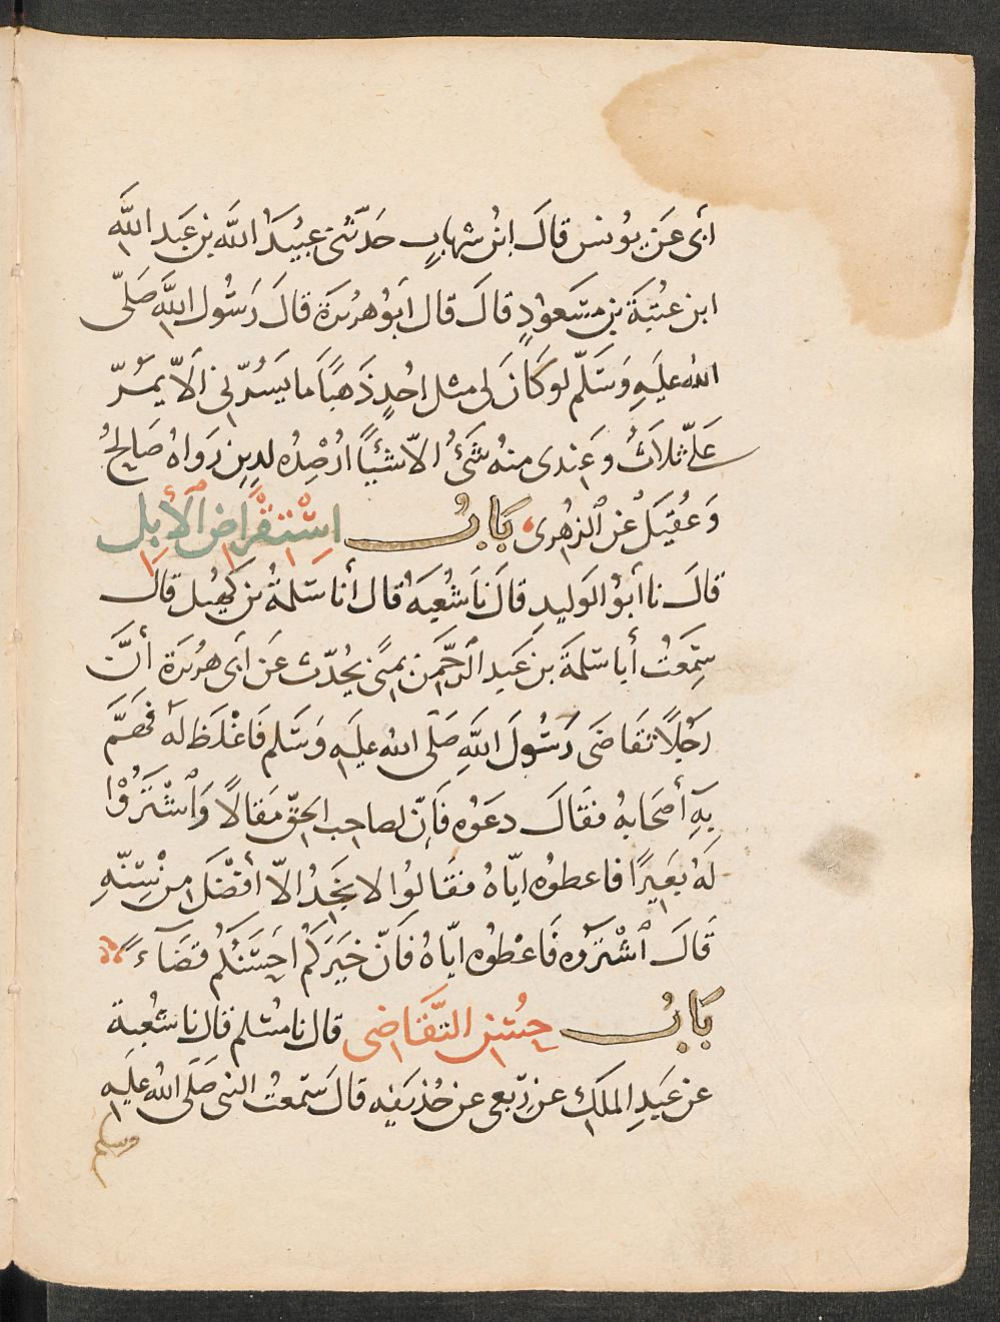 أبى عَن يونس قالَ ابنُ شهابٍ حَدّثنى عبيدُ اللّه بن عَبد اللّه
ابن عتبَة بن مسَعودٍ قالَ قال أبوُ هريرَة قالَ رَسُول اللّه صَلىّ
الله عليَهِ وَسَلّم لو كانَ لى مثل احُدٍ ذَهبًا ما يسَرّنى ألاّ يمُرّ
عَلىّ ثلاثٌ وعَندى منهُ شَئٌ الاّ شئياً ارُصِدُه لدِينٍ رَواهُ صَالحٌ
وَعُقيَل عن الزهُرى بَابُ اسْتقْراض الإبل
قالَ نا أبوُ الوَليدِ قالَ نَا شُعبَةُ قال أنا سَلمةُ بن كُهيُل قالَ
سِمَعتُ أبا سَلمةَ بن عَبد الرحّمن بمنًى يحُدّث عَن أبى هريرَة أنَّ
رَجُلاً تقَاضَى رَسُولَ اللّهِ صَلّى الله عليَهِ وَسَلم فَاغْلظ لهُ فَهمَّ
بِهِ أصَحَابهُ فقَالَ دعَوُه فَإنّ لصاحِب الحقّ مَقالاً وَاشْتَرُوْا
لهُ بعَيرًا فاعطوُه ايّاهُ فقَالوُا لا نجَدُ الاّ أفضَلَ من سِنّهِ
قَالَ اشْترَوه فَاعْطوُه ايّاهُ فَانّ خيَرَكمُ احَسَنكُم قضَآءً
بَابُ حسُن التّقَاضى قال نا مسُلم قال نا شعُبة
عن عَبدِ الملَك عن ربّعى عن حُذيَفه قالَ سَمّعتُ النبى صَلّى الله عليَهِ
وسلم